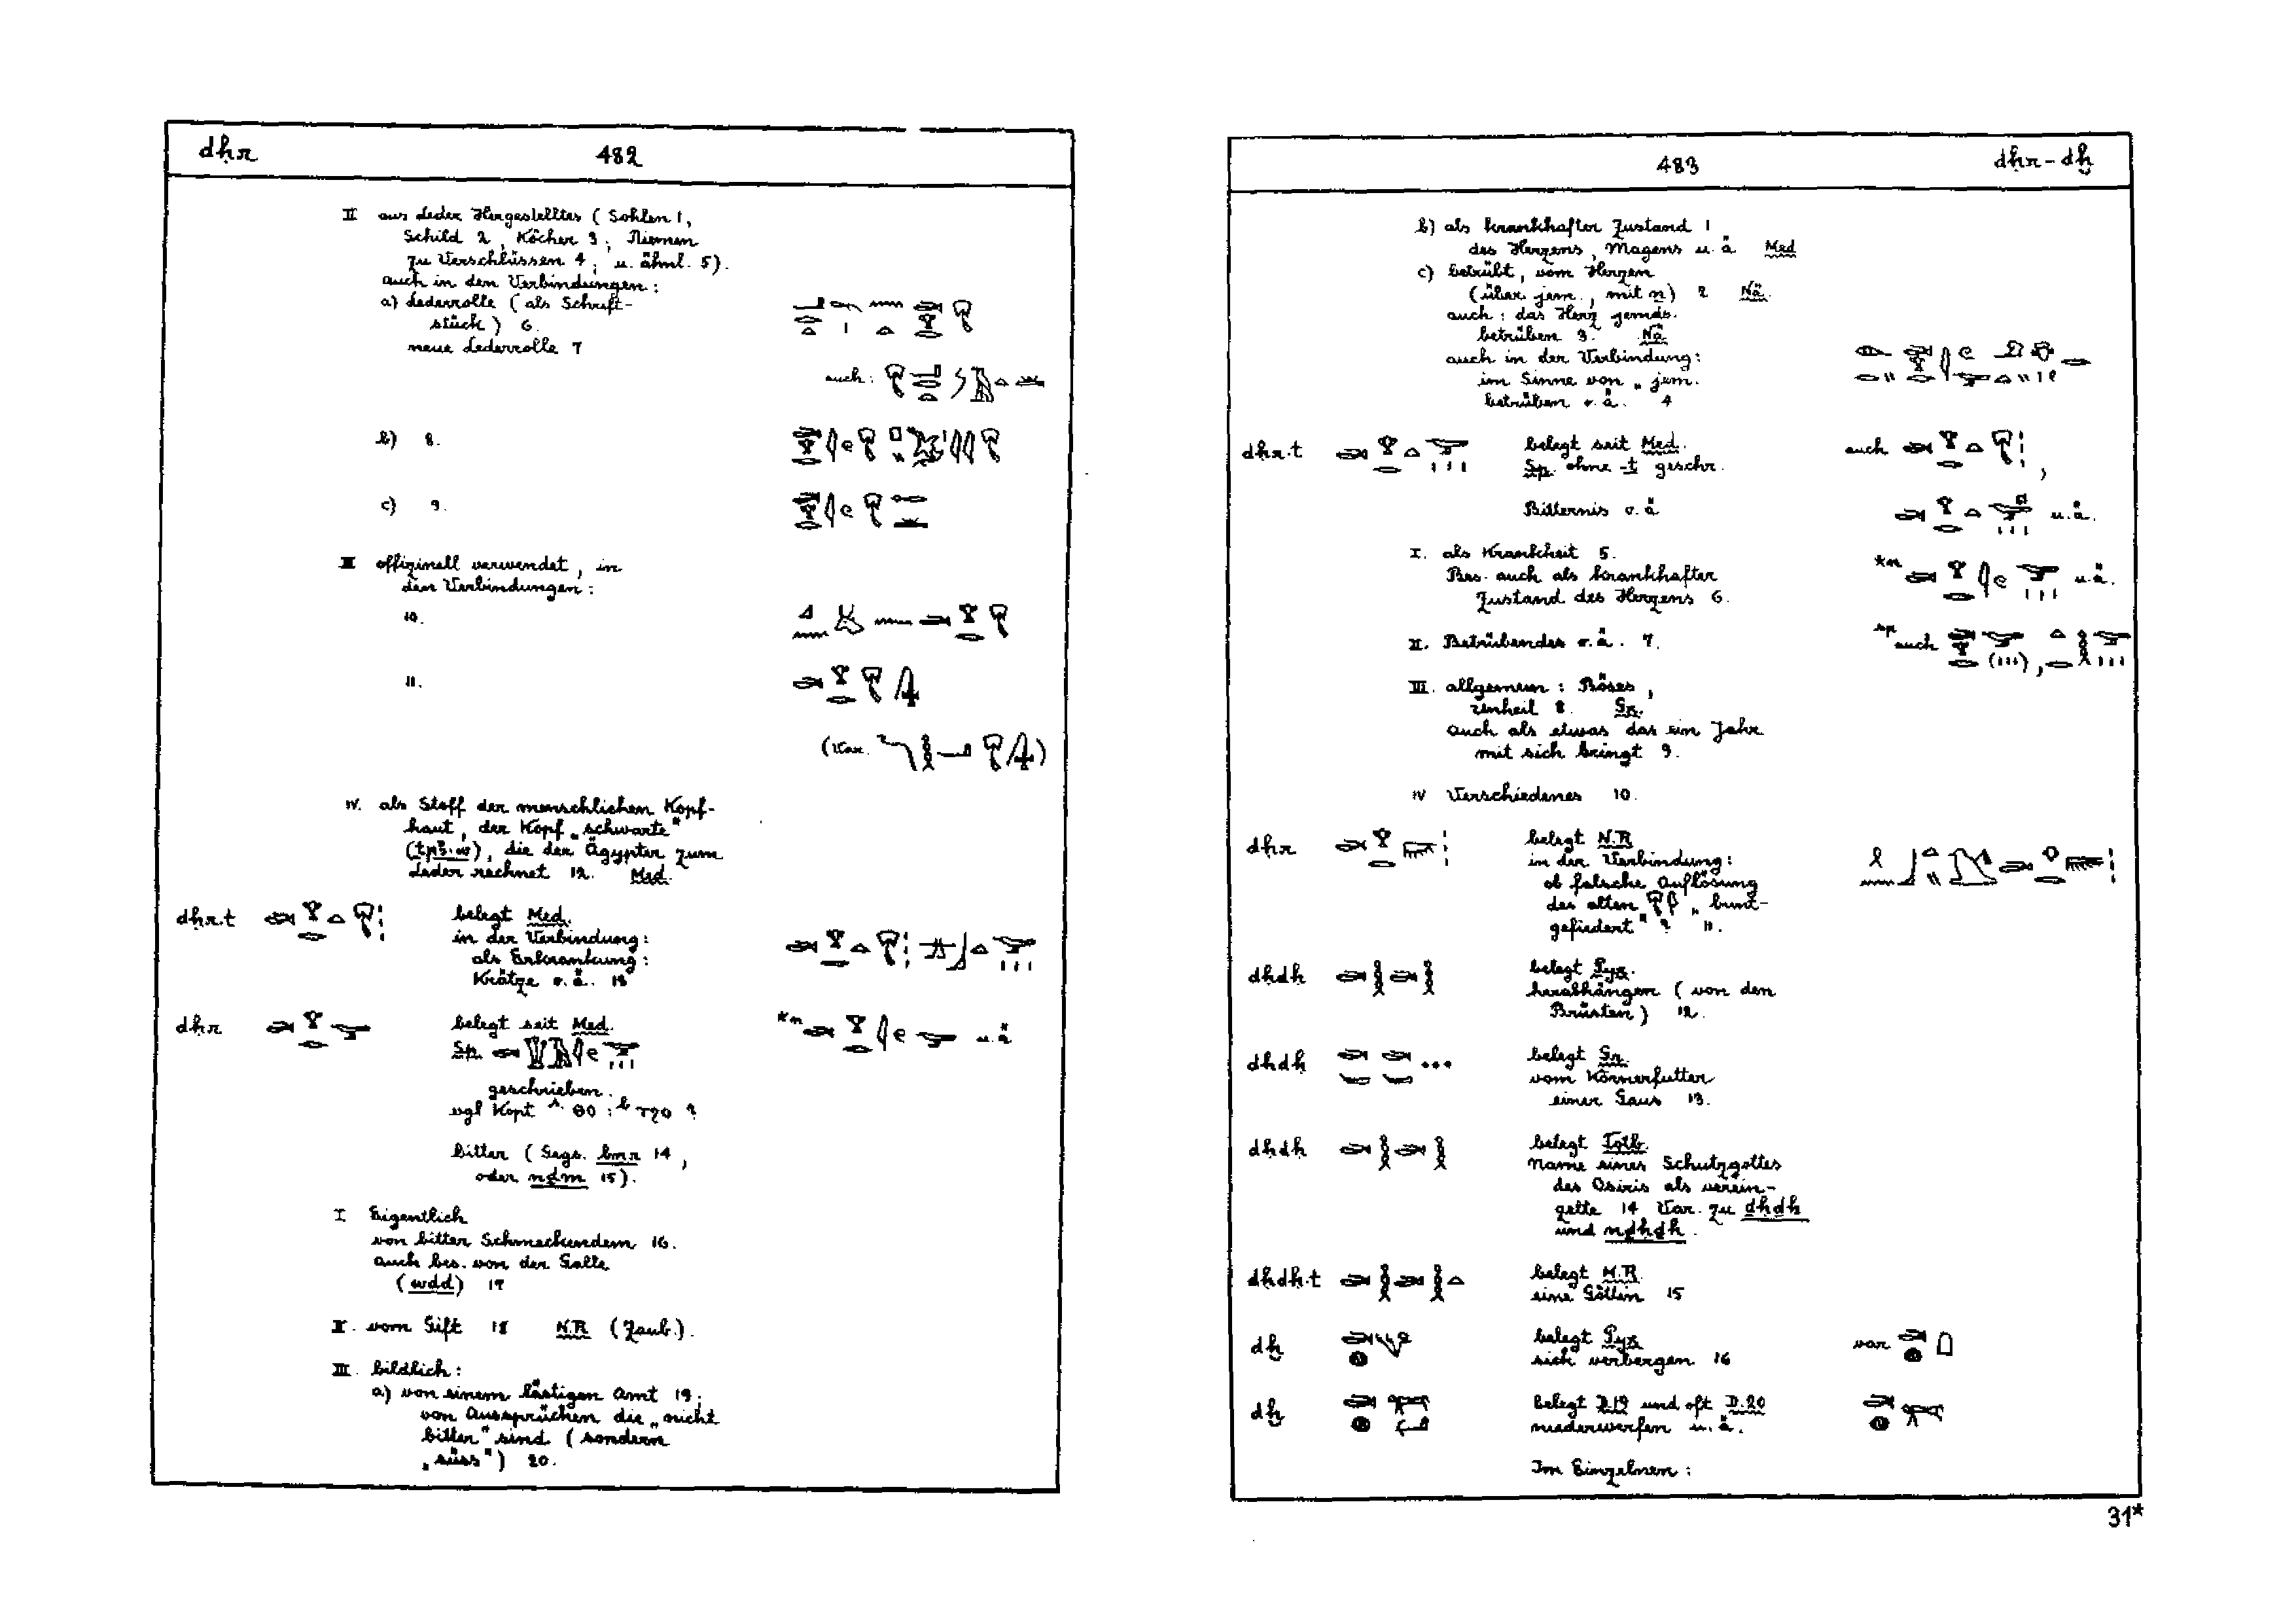 dḥr 482
II aus Leder Hergestelltes (Sohlen 1,
Schild 2, Köcher 3, Riemen
zu Verschlüssen 4, u. ähnl. 5).
auch in den Verbindungen:
a) Lederrolle (als Schrift-
stück) 6.
neue Lederrolle 7
auch:
b) 8.
c) 9.
III offizinell verwendet, in
den Verbindungen:
10.
11.
(Var. )
IV. als Stoff der menschlichen Kopf-
haut, der Kopf„schwarte"
die der Ägypter zum
Leder rechnet 12. Med.
dḥr.t belegt Med.
in der Verbindung:
als Erkrankung:
Krätze o.ä. 13
dḥr belegt seit Med. *n u.ä
Sp.
geschrieben.
vgl Kopt
bitter (Ggs. bnr 14,
oder nḏm 15).
I Eigentlich
von bitter Schmeckendem 16.
auch bes. von der Galle
(wdd) 17
II. vom Gift 18 N.R (Zaub.).
III. bildlich:
a) von einem lästigen Amt 19;
von Aussprüchen die „nicht
bitter" sind (sondern
„süss") 20.
483 dḥr - dẖ
b) als krankhafter Zustand 1
des Herzens, Magens u.ä Med
c) betrübt, vom Herzen
(über jem., mit n) 2 Nä.
auch: das Herz jemds.
betrüben 3. Nä
auch in der Verbindung:
im Sinne von „jem.
betrüben o.ä. 4
dḥr.t belegt seit Med. auch
Sp. ohne -t geschr.
Bitternis o.ä u.ä.
I. als Krankheit 5. *n u.ä.
Bes. auch als krankhafter
Zustand des Herzens 6.
II. Betrübendes o.ä. 7. Sp auch
III. allgemein: Böses,
Unheil 8. Gr.
auch als etwas das ein Jahr
mit sich bringt 9.
IV Verschiedenes 10.
dḥr belegt N.R
in der Verbindung:
ob falsche Auflösung
des alten „bunt-
gefiedert" ? 11.
dḥdḥ belegt Pyr.
herabhängen (von den
Brüsten) 12.
dḥdḥ belegt Gr.
vom Körnerfutter
einer Gans 13.
dḥdḥ belegt Totb.
Name eines Schutzgottes
des Osiris als verein-
zelte 14 Var. zu
und
dḥdḥ.t belegt M.R.
eine Göttin 15
dẖ belegt Pyr. var
sich verbergen 16
dẖ belegt D.19 und oft D.20
niederwerfen u.ä.
Im Einzelnen:
31*